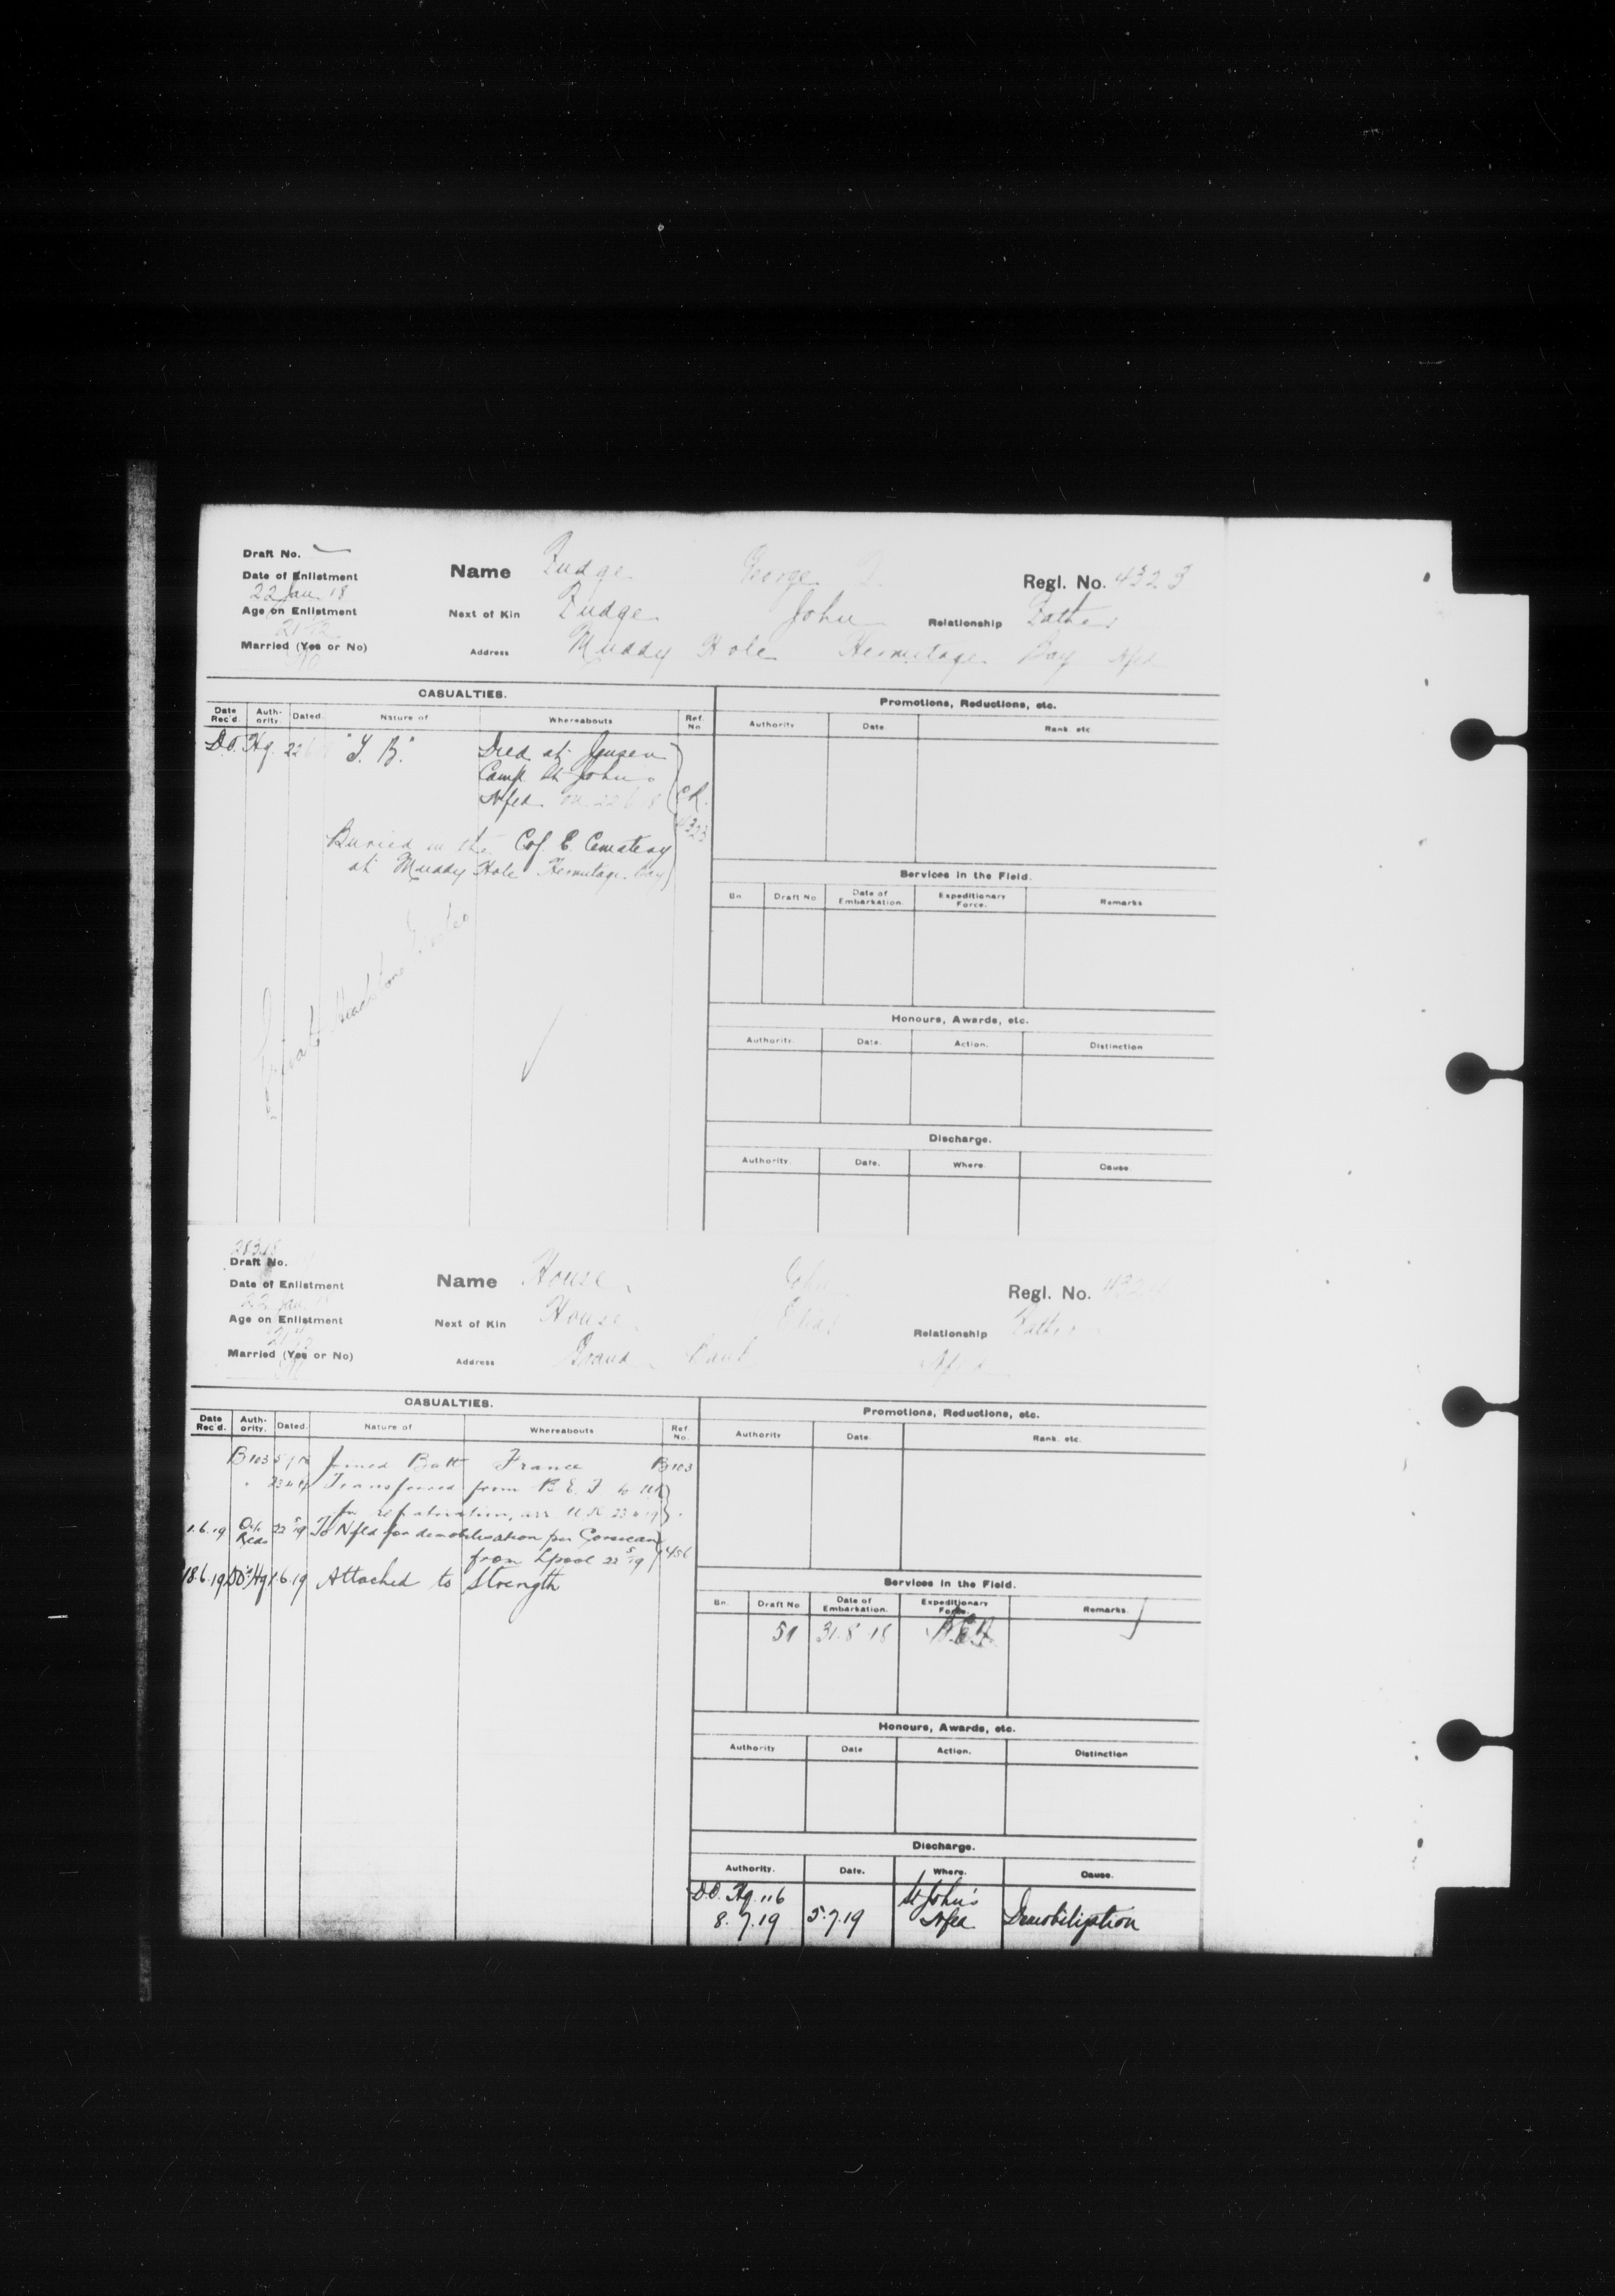 Draft No. —
Date of Enlistment
22 Jan 18
Age on Enlistment
21
Married (Yes or No)
No
Name Fudge George
Regl. No. 4323
Next of Kin Fudge John Relationship Father
Address Muddy Hole Hermitage Bay Nfld
CASUALTIES.
Date Rec'd. Auth- ority. Dated. Nature of Whereabouts Ref. No.
D.O. Hq. 22 "T. B." Died at Jensen
Camp St John's
Nfld. on 22 6 18 C.R.
4323
Buried in the C of E. Cemetery
at Muddy Hole Hermitage Bay
Headstone
Promotions, Reductions, etc.
Authority Date Rank. etc
Services in the Field.
Bn. Draft No Date of Embarkation. Expeditionary Force. Remarks
Honours, Awards, etc.
Authority. Date. Action. Distinction
Discharge.
Authority. Date. Where. Cause.
Draft No.
Date of Enlistment
22 Jan
Age on Enlistment
Married (Yes or No)
No
Name House
Regl. No. 4324
Next of Kin House Relationship Father
Address Grand Bank Nfld
CASUALTIES.
Date Rec'd. Auth- ority. Dated. Nature of Whereabouts Ref. No.
B103 Joined Batt France B103
" 23 4 19 Transferred from B. E. F to UK
for repatriation, arr. U K 23 4 19 "
1.6.19 22 5 19 To Nfld for demobilisation per Corsican
from Lpool 22 5 19 456
18.6.19 D.O. Hq 1.6.19 Attached to Strength
Promotions, Reductions, etc.
Authority Date. Rank. etc.
Services in the Field.
Bn. Draft No Date of Embarkation. Expeditionary Force. Remarks.
51 31.8.18 B.E.F.
Honours, Awards, etc.
Authority Date Action. Distinction
Discharge.
Authority. Date. Where. Cause.
D.O. Hq. 116 St John's
8.7.19 5.7.19 Nfld Demobilization